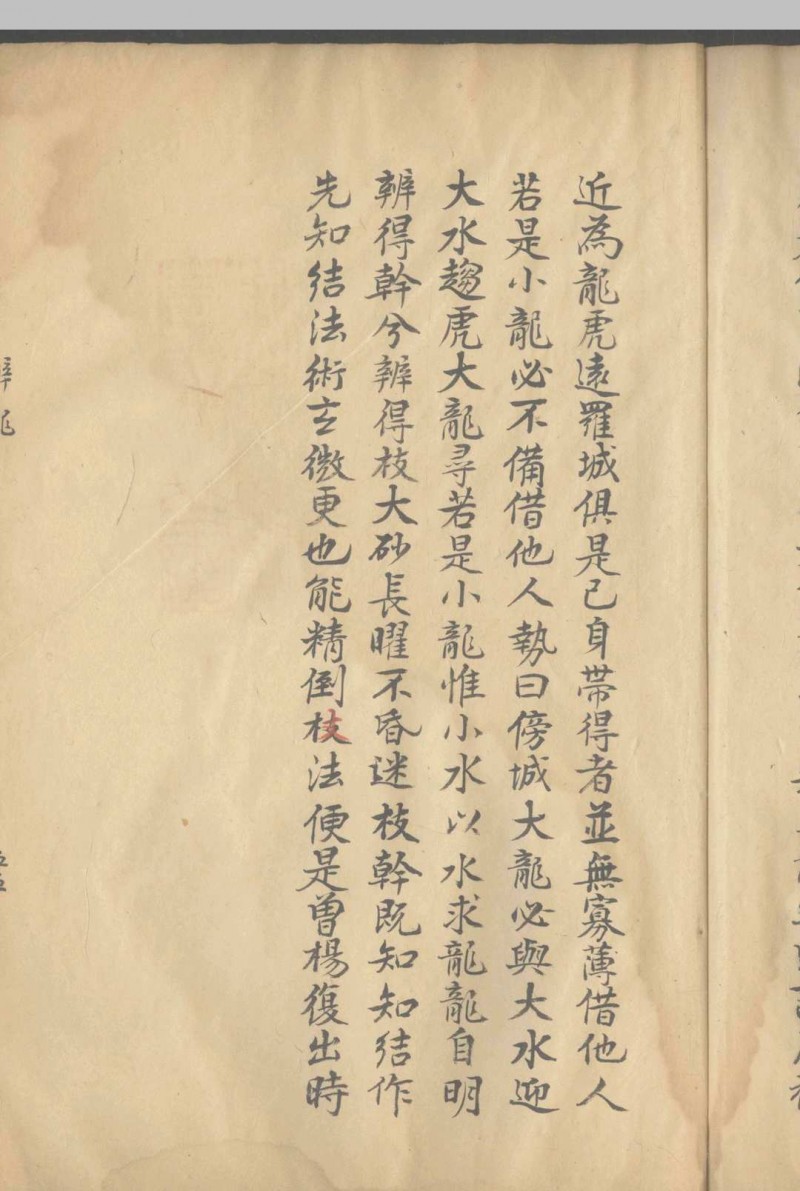 近為龍虎遠羅城俱是己身帶得者並無寡薄借他人
若是小龍必不備借他人勢曰傍城大龍必與大水迎
大水趨虎大龍尋若是小龍惟小水以水求龍龍自明
辨得幹兮辨得枝大砂長曜不昏迷枝幹既知知結作
先知結法術玄微更也能精倒枝法便是曾楊復出時